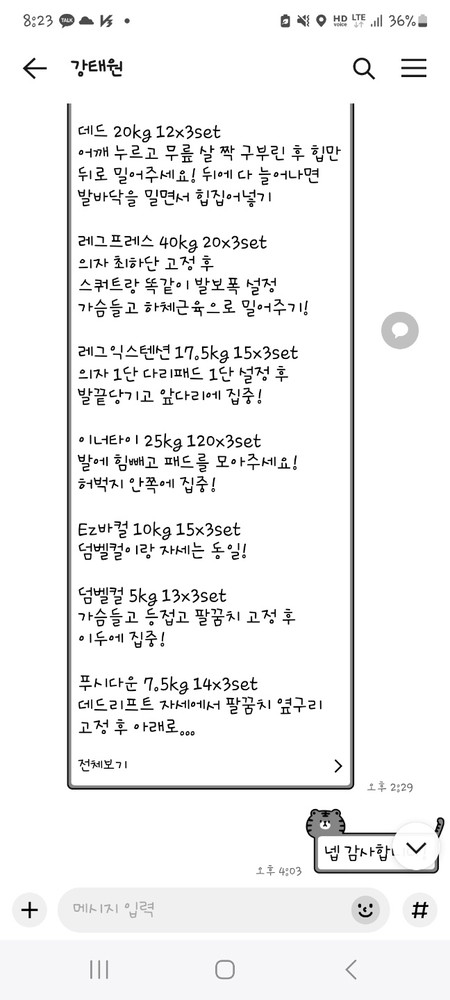 8:23
TALK
HD voice
LTE
36%
강태원
데드 20kg 12x3set
어깨 누르고 무릎 살 짝 구부린 후 힙만
뒤로 밀어주세요! 뒤에 다 늘어나면
발바닥을 밀면서 힙집어넣기
레그프레스 40kg 20x3set
의자 최하단 고정 후
스쿼트랑 똑같이 발보폭 설정
가슴들고 하체근육으로 밀어주기!
레그익스텐션 17.5kg 15x3set
의자 1단 다리패드 1단 설정 후
발끝당기고 앞다리에 집중!
이너타이 25kg 120x3set
발에 힘빼고 패드를 모아주세요!
허벅지 안쪽에 집중!
Ez바컬 10kg 15x3set
덤벨컬이랑 자세는 동일!
덤벨컬 5kg 13x3set
가슴들고 등접고 팔꿈치 고정 후
이두에 집중!
푸시다운 7.5kg 14x3set
데드리프트 자세에서 팔꿈치 옆구리
고정 후 아래로...
전체보기
오후 2:29
넵 감사합
오후 4:03
메시지 입력
#